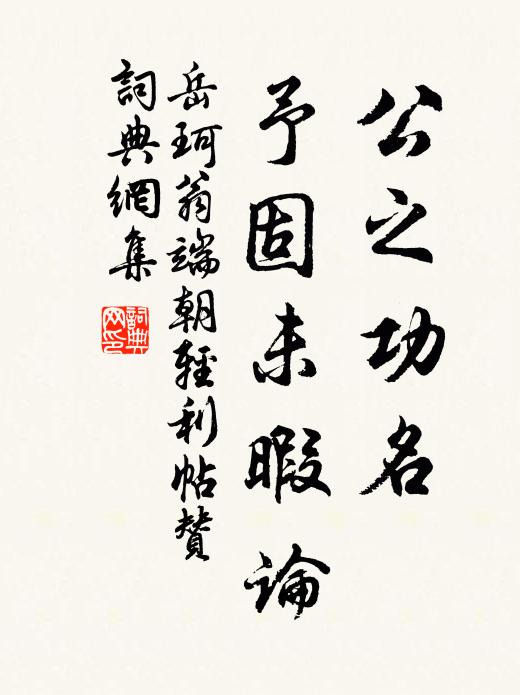 公之功名
予固未暇論
岳珂翁端朝輕利帖贊
詞典網集
詞典
网印